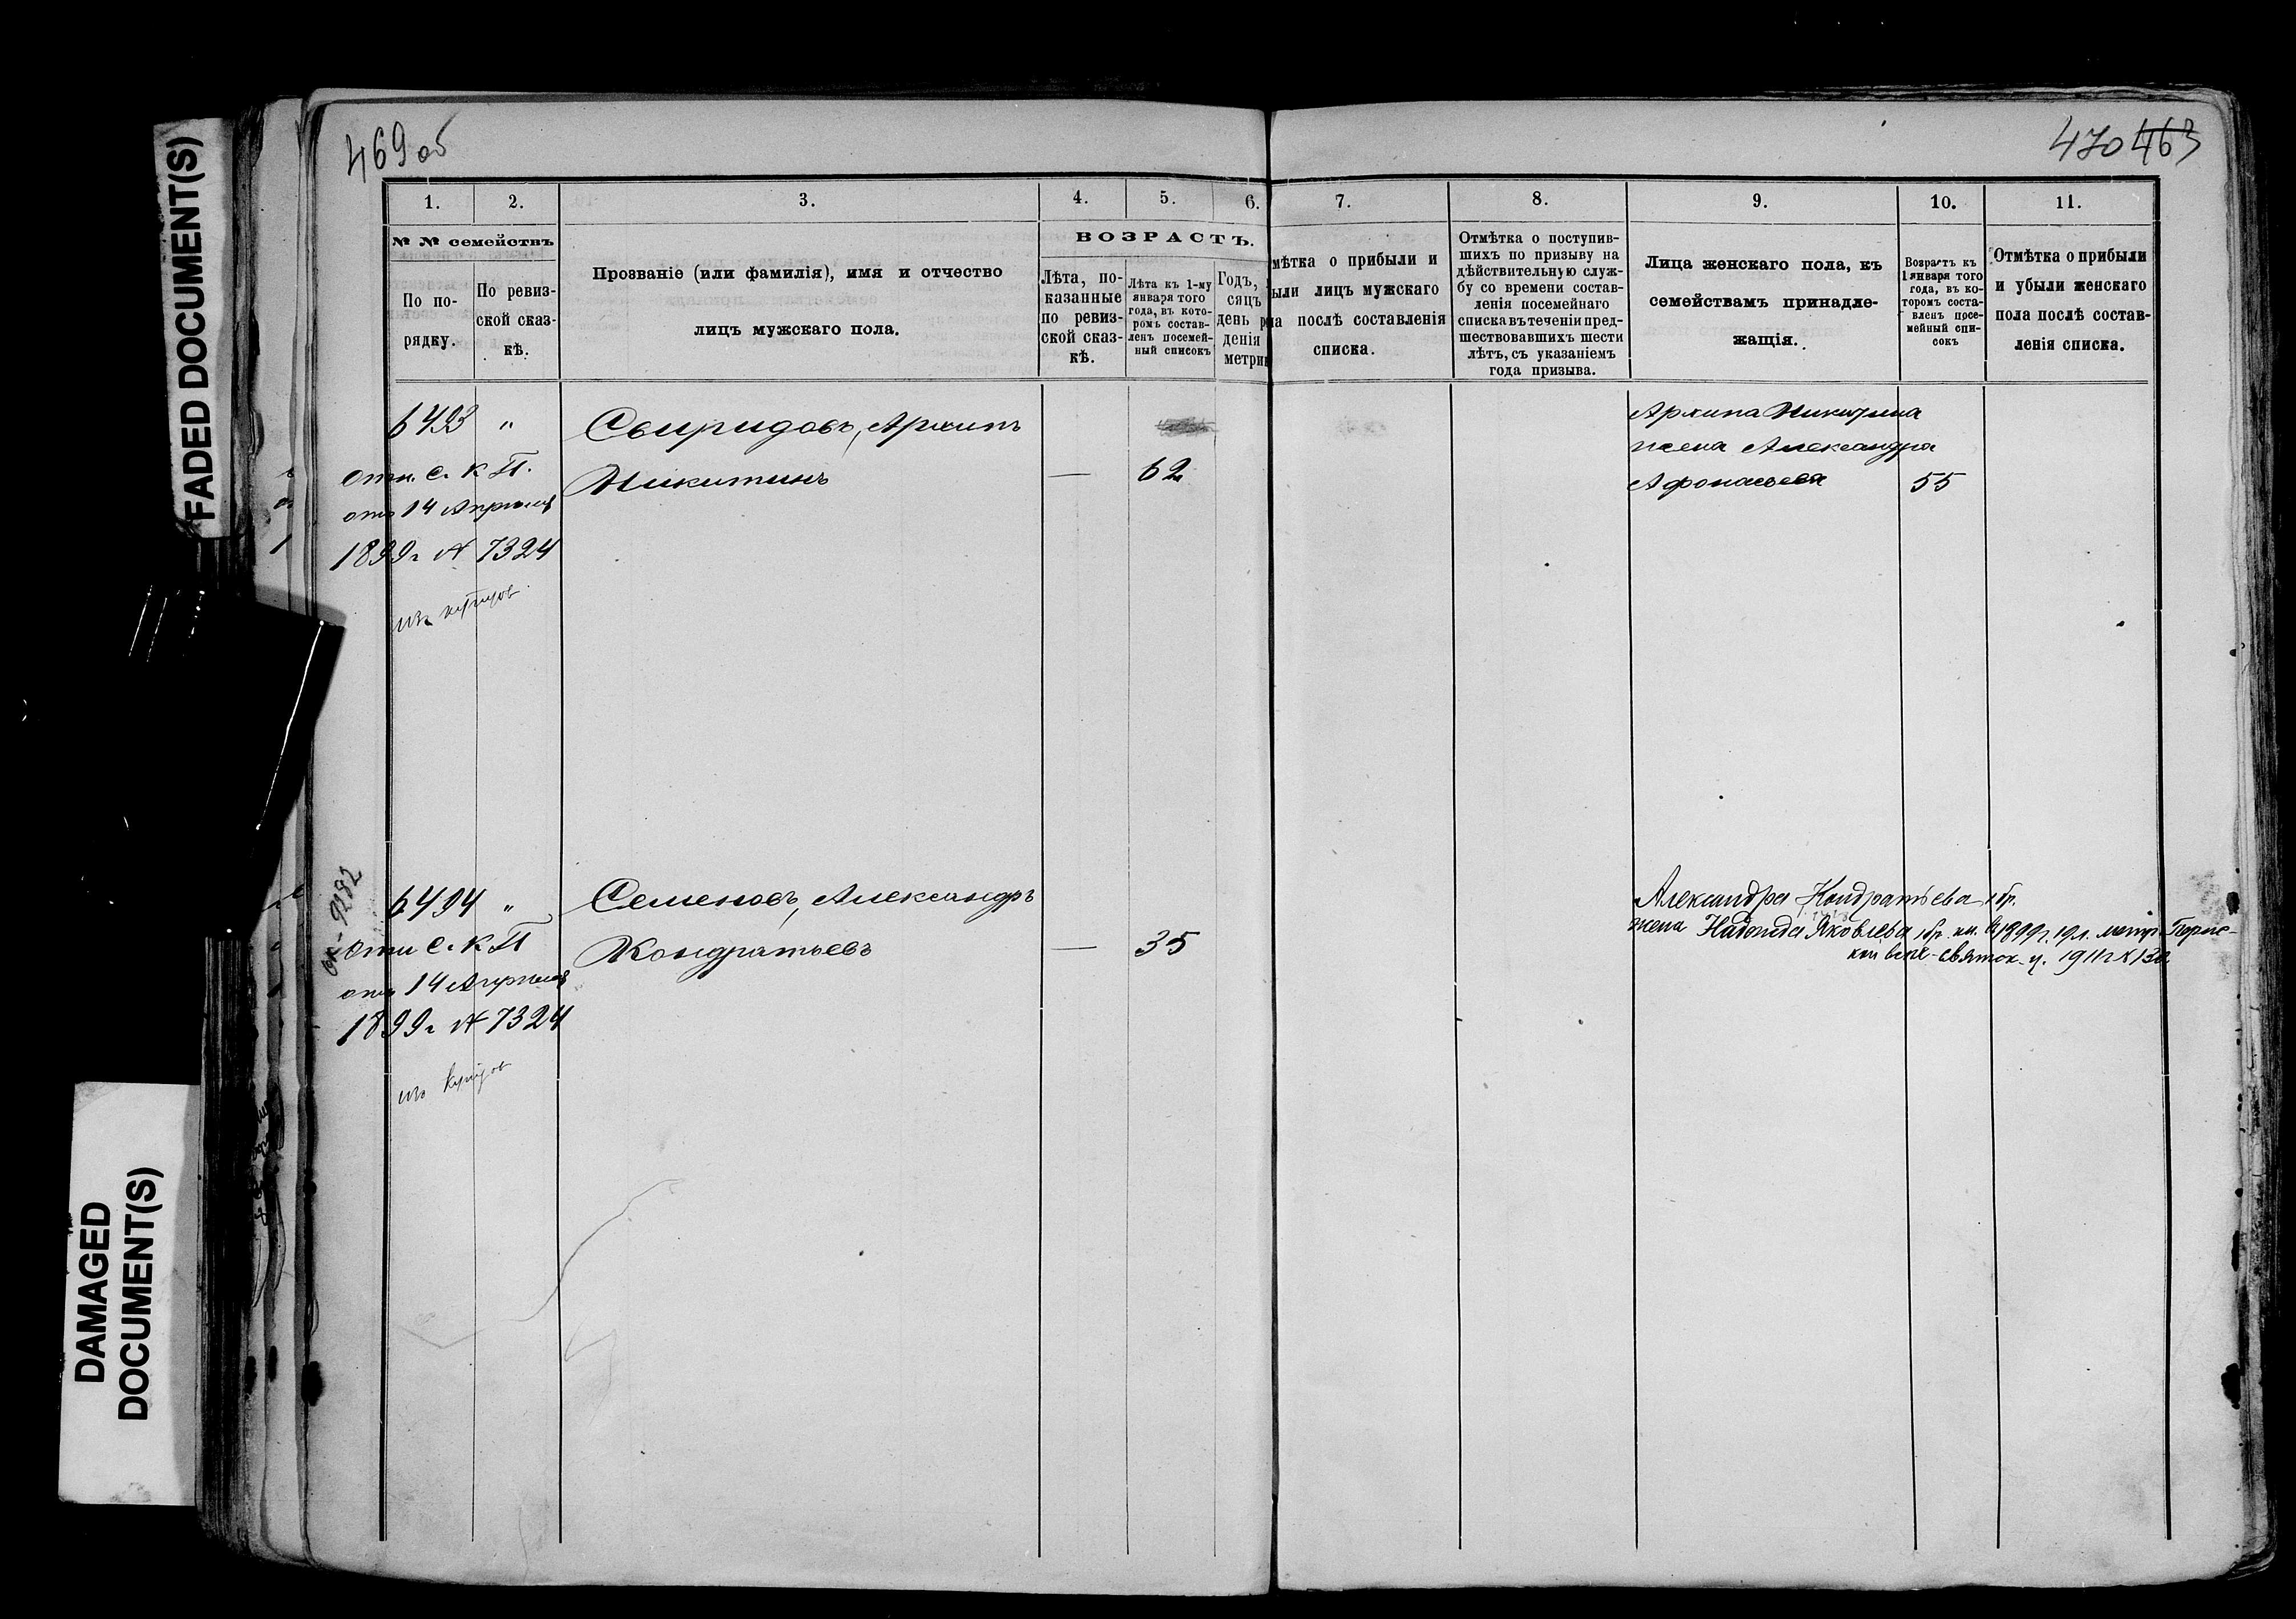 FADED DOCUMENT(S)
DAMAGED
DOCUMENT(S)
469 об
470 463
1.
2.
3.
4.
5.
6.
7.
8.
9.
10.
11.
№ № семействъ
По по-
рядку.
По ревиз-
ской сказ-
кѣ.
Прозваніе (или фамилія), имя и отчество
лицъ мужскаго пола.
ВОЗРАСТЪ.
Лѣта, по-
казанные
по ревиз-
ской сказ-
кѣ.
Лѣта къ 1-му
января того
года, въ кото-
ромъ состав-
ленъ посемей-
ный списокъ
Годъ,
сяцъ
день р
денія
метрик
мѣтка о прибыли и
ыли лицъ мужскаго
ла послѣ составленія
списка.
Отмѣтка о поступив-
шихъ по призыву на
дѣйствительную служ-
бу со времени состав-
ленія посемейнаго
списка въ теченіи пред-
шествовавшихъ шести
лѣтъ, съ указаніемъ
года призыва.
Лица женскаго пола, къ
семействамъ принадле-
жащія.
Возрастъ къ
1 января того
года, въ ко-
торомъ соста-
вленъ посе-
мейный спи-
сокъ
Отмѣтка о прибыли
и убыли женскаго
пола послѣ состав-
ленія списка.
6493 " Свиридовъ, Архипъ
Никитинъ — 62
отн. С. К П.
отъ 14 Апрѣля
1899 г № 7324
изъ купцов
Архипа Никитина
жена Александра
Афонасьева 55
9282
6494 " Семеновъ, Александръ
Кондратьевъ — 35
отн С. К П
отъ 14 Апрѣля
1899 г № 7324
изъ купцов
Александра Кондратьева 1 бр.
жена Надежда Яковлева 1 бр. 1899 г. 19 л.
1911 г